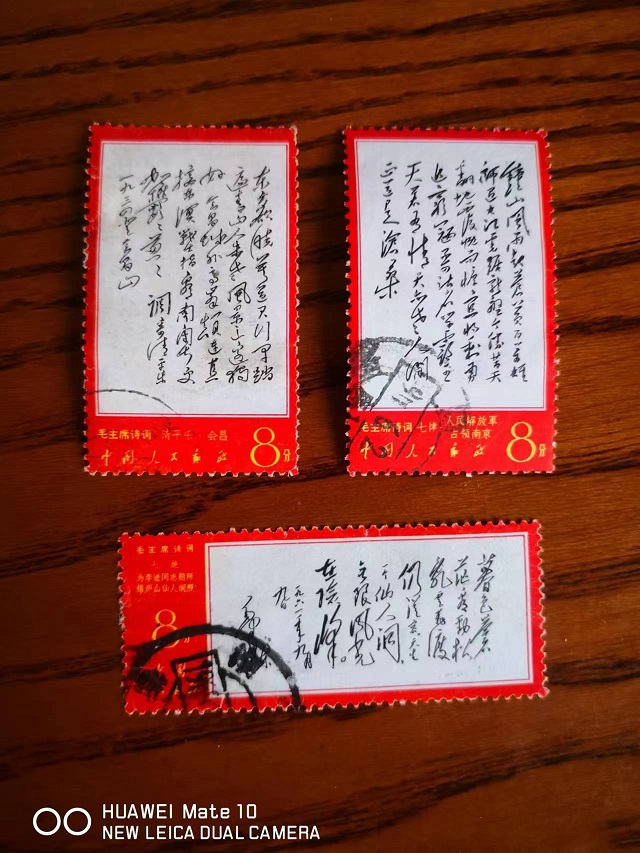 东方欲晓莫道君行早踏
遍青山人未老风景这边独
好会昌城外高峰颠连直
接东溟战士指看南粤更
加郁郁葱葱 调寄清平乐
一九三四年
毛主席诗词 清平乐 会昌
中国人民邮政 8分
钟山风雨起苍黄百万雄
师过大江虎踞龙盘今胜昔天
翻地覆慨而慷宜将剩勇
追穷寇不可沽名学霸王
天若有情天亦老人间
正道是沧桑
毛主席诗词 七律 人民解放军
占领南京
中国人民邮政 8分
毛主席诗词
七绝
为李进同志题所
摄庐山仙人洞照
8
暮色苍
茫看劲松
乱云飞渡
仍从容天生
一个仙人洞
无限风光
在险峰
一九六一年九月
九日
HUAWEI Mate 10
NEW LEICA DUAL CAMERA